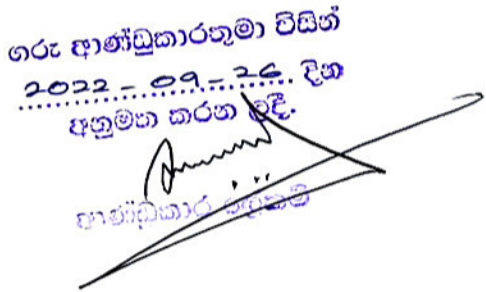 ගරු ආණ්ඩුකාරතුමා විසින්
2022 - 09 - 26. දින
අනුමත කරන ලදී.
ආණ්ඩුකාර ලේකම්